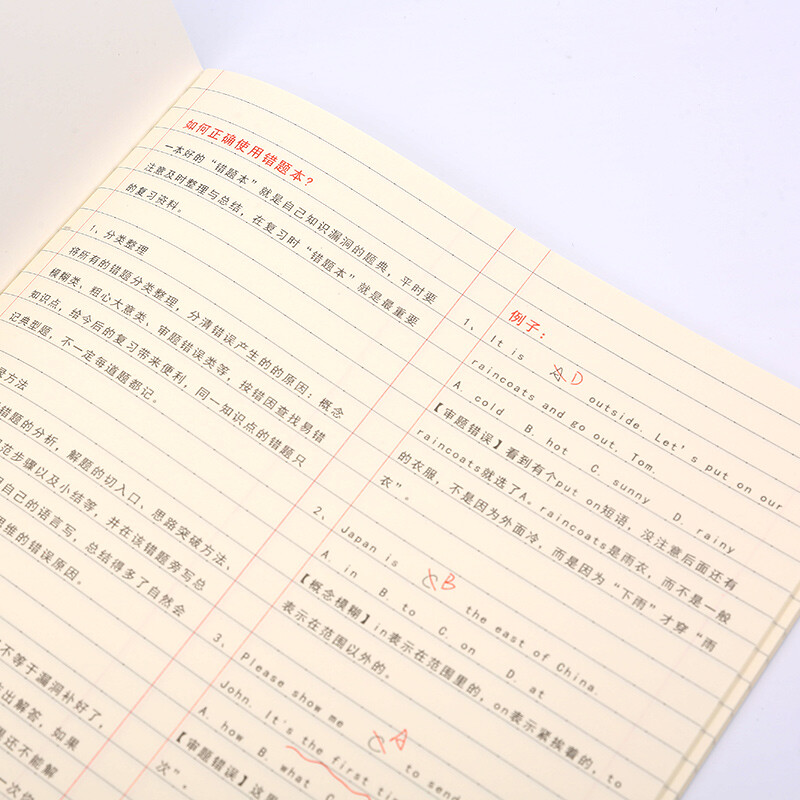 如何正确使用错题本?
一本好的“错题本”就是自己知识漏洞的题典，平时要
注意及时整理与总结，在复习时“错题本”就是最重要
的复习资料。
1、分类整理
将所有的错题分类整理，分清错误产生的的原因：概念
模糊类、粗心大意类、审题错误类等，按错因查找易错
知识点，给今后的复习带来便利，同一知识点的错题只
记典型题，不一定每道题都记。
方法
错题的分析，解题的切入口、思路突破方法、
范步骤以及小结等，并在该错题旁写总
自己的语言写，总结得多了自然会
思维的错误原因。
不等于漏洞补好了，
出解答，如果
还不能解
一次
例子：
1、It is A D outside. Let's put on our
raincoats and go out, Tom.
A .cold B. hot C. sunny D. rainy
【审题错误】看到有个put on短语，没注意后面还有
raincoats就选了A。raincoats是雨衣，而不是一般
的衣服，不是因为外面冷，而是因为“下雨”才穿“雨
衣”。
2、Japan is C B the east of China.
A. in B. to C. on D. at
【概念模糊】in表示在范围里的，on表示紧挨着的，to
表示在范围以外的。
3、Please show me C A to send
John. It's the first
A. how B. what C
【审题错误】这里
次”。